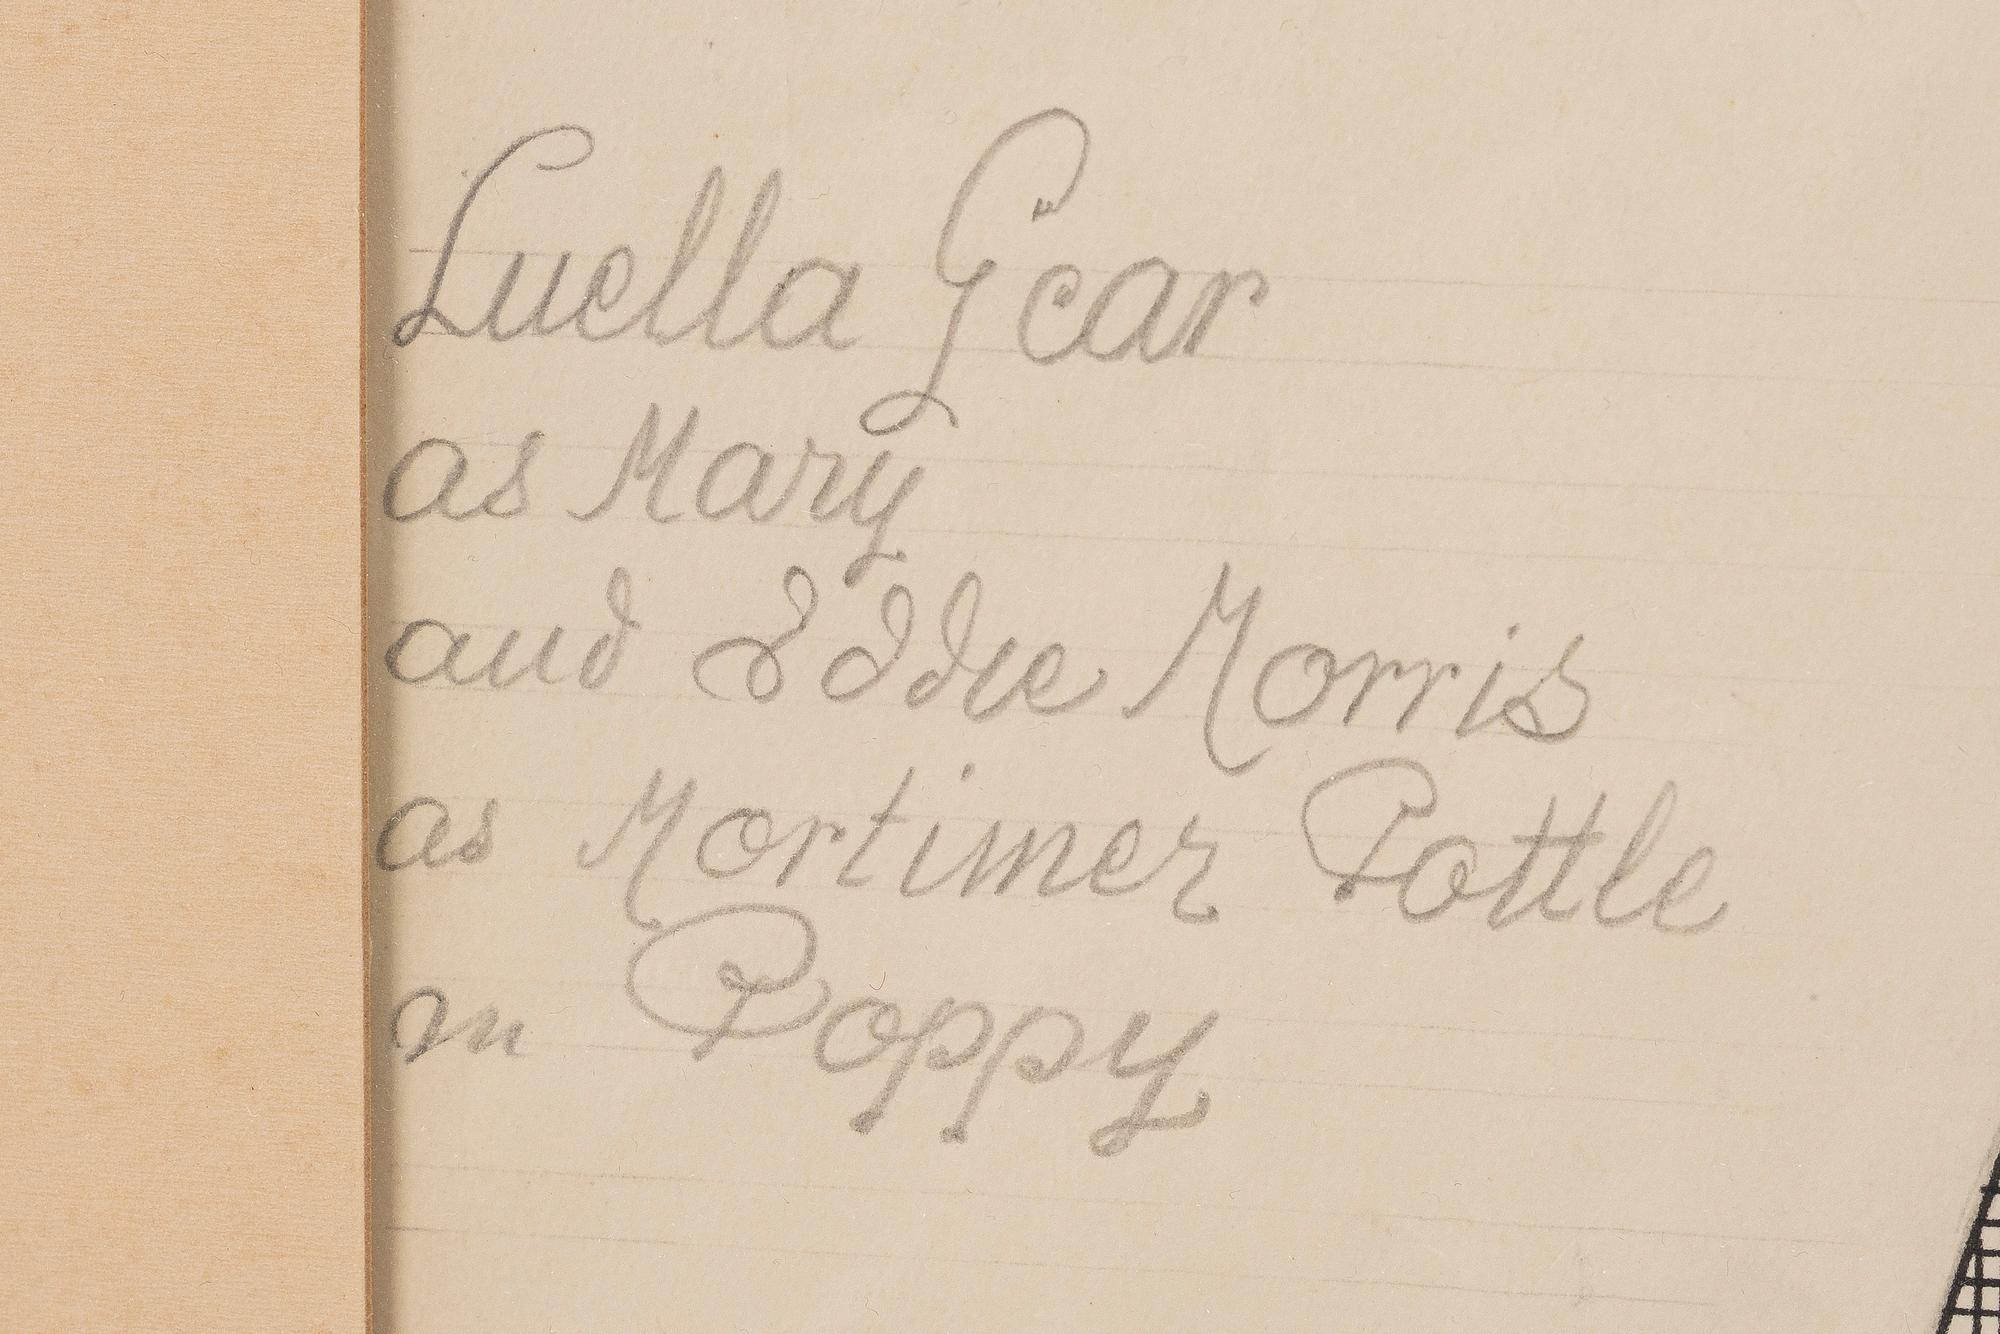 Luella Gear
as Mary
and Eddie Morris
as Mortimer Pottle
in Poppy